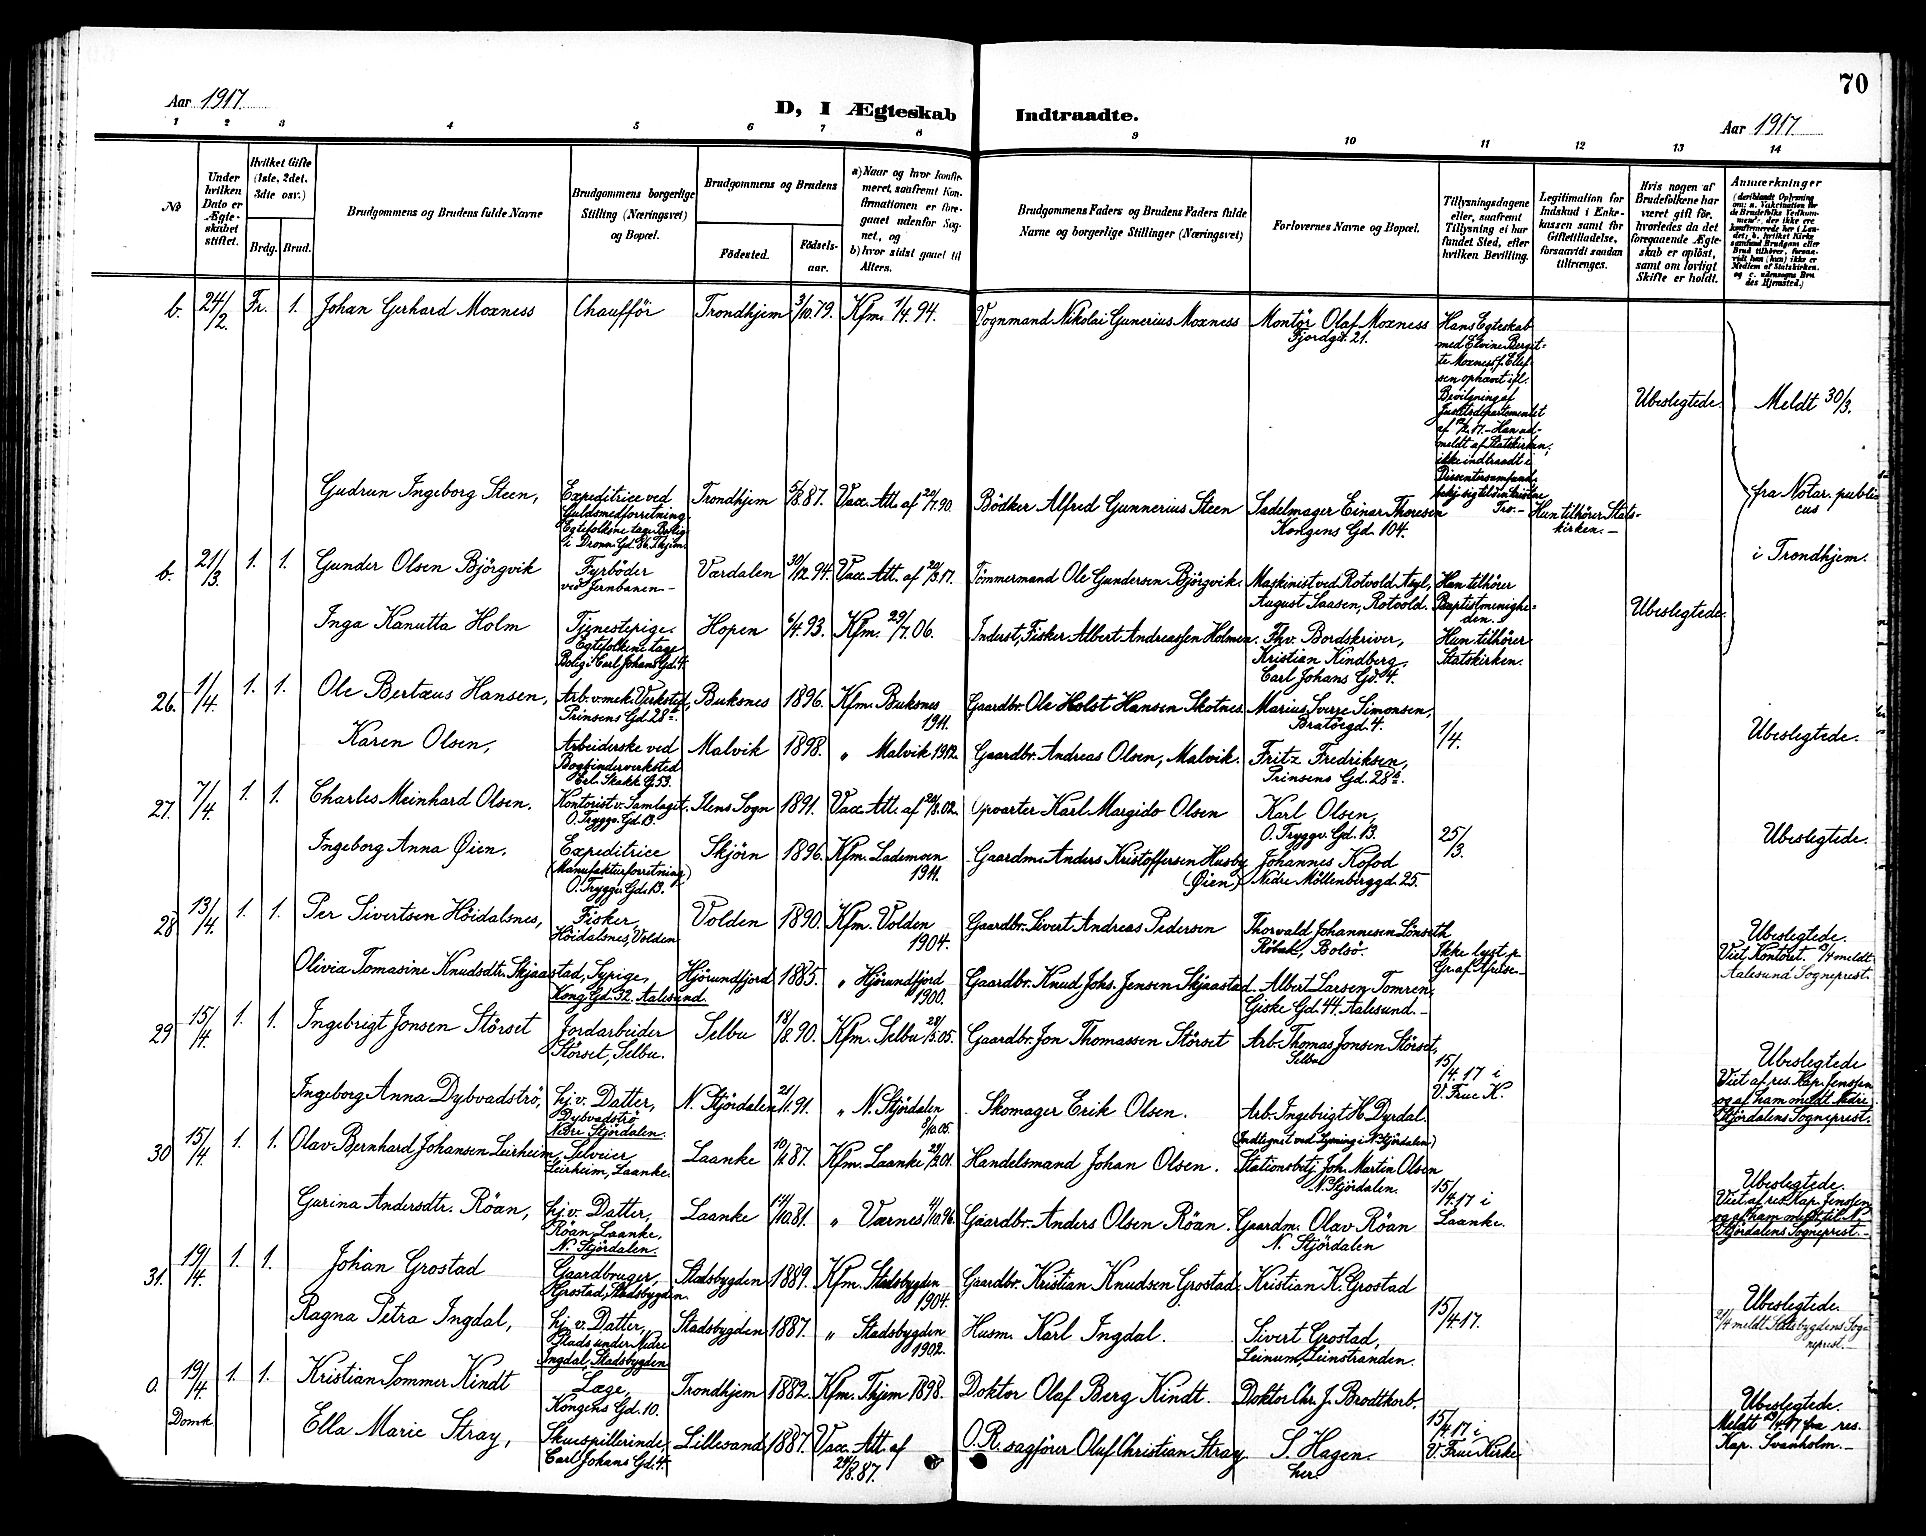 70
Aar 1917.
D, I Ægteskab Indtraadte.
Aar 1917.
1 2 3 4 5 6 7 8 9 10 11 12 13 14
No
Under hvilken Dato er Ægteskabet stiftet.
Hvilket Gifte (1ste, 2det, 3die osv.)
Brdg. Brud.
Brudgommens og Brudens fulde Navne
Brudgommens borgerlige Stilling (Næringsvei) og Bopæl.
Brudgommens og Brudens
Födested.
Födselsaar.
a) Naar og hvor konfirmeret, saafremt Konfirmationen er foregaaet udenfor Sognet, og
b) hvor sidst gaaet til Alters.
Brudgommens Faders og Brudens Faders fulde Navne og borgerlige Stillinger (Næringsvei)
Forlovernes Navne og Bopæl.
Tillysningsdagene eller, saafremt Tillysning ei har fundet Sted, efter hvilken Bevilling.
Legitimation for Indskud i Enkekassen samt for Giftetilladelse, forsaavidt saadan tiltrænges.
Hvis nogen af Brudefolkene har været gift för, hvorledes da det foregaaende Ægteskab er oplöst, samt om lovligt Skifte er holdt.
Anmærkninger
b. 24/2. Fr. 1. Johan Gerhard Moxness Chaufför Trondhjem 3/10.79. Kfm. 1/4.94. Vognmand Nikolai Gunerius Moxness Montör Olaf Moxness
Fjordgd. 21.
Hans Egteskab
med Elvine Bergit-
te Moxness f. Ellef-
sen ophævet ifl.
Bevilgning af
Justitsdepartementet
Han ud-
meldt af Statskirken,
ikke indtraadt i
Dissentersamfund,
Tro.-
Ubeslegtede. Meldt 30/3.
Gudrun Ingeborg Steen, Expeditrice ved Trondhjem 5/8.87. Vacc. Att. af Bödker Alfred Gunnerius Steen Sadelmager Einar Thoresen
Guldsmedforretning.
Egtefolkene tage Bolig
i Dronn. Gd. 86. Thjem.
Kongens Gd. 104.
Hun tilhörer Stats-
kirken.-
fra Notar. publi
cus
i Trondhjem.
b. 21/3. 1. 1. Gunder Olsen Björgvik Fyrböder Værdalen 30/12.94. Vacc. Att. af 20/3.17. Tömmermand Ole Gundersen Björgvik. Maskinist ved Rotvold Asyl, Han tilhörer
ved Jernbanen- August Saasen, Rotvold. Baptistmenighe-
den.-
Inga Kanutta Holm Tjenestepige. Hopen 6/4.93. Kfm. 29/7.06. Inderst, Fisker Albert Andreassen Holmen. Fhv. Bordskriver, Hun tilhörer
Egtefolkene tage Kristian Kindberg, Statskirken.
Bolig i Carl Johans Gd. 4. Carl Johans Gd. 4.
Ubeslegtede.
26. 1/4. 1. 1. Ole Bertæus Hansen, Arb. v. mek. Verksted, Buksnes 1896. Kfm. Buksnes Gaardbr. Ole Holst Hansen Skotnes. Marius Sverre Simonsen,
Prinsens Gd. 28a. 1911. Bratörgd. 4.
Karen Olsen, Arbeiderske ved Malvik 1898. „ Malvik 1912. Gaardbr. Andreas Olsen, Malvik. Fritz Fredriksen, 1/4. Ubeslegtede.
Bogbinderverksted
Erl. Skakk. G. 53. Prinsens Gd. 28a.
27. 7/4. 1. 1. Charles Meinhard Olsen. Kontorist v. Samlaget. Ilens Sogn 1891. Vacc. Att. af 20/8.02. Opvarter Karl Margido Olsen Karl Olsen,
O. Tryggv. Gd. 13. O. Tryggv. Gd. 13. 25/3. Ubeslegtede.
Ingeborg Anna Øien, Expeditrice Skjörn 1896. Kfm. Lademoen Gaardm. Anders Kristoffersen Husby Johannes Kofod
(Manufakturforretning) 1911. (Øien) Nedre Möllenberggd. 25.
O. Tryggv. Gd. 13.
28. 13/4. 1. 1. Per Sivertsen Höidalsnes, Fisker, Volden 1890. Kfm. Volden Gaardbr. Sivert Andreas Pedersen Thorvald Johannesen Lönseth
Höidalsnes, Volden 1904. Röbak, Bolsö. Ikke lyst p.
Gr. af Afreise-
Ubeslegtede.
Viet Kontoret. 13/4 meldt
Aalesund Sogneprest.
Olivia Tomasine Knudsdtr. Skjaastad, Sypige, Hjörundfjord 1885. „ Hjörundfjord Gaardbr. Knud Johs. Jensen Skjaastad. Albert Larsen Tomren,
Kong. Gd. 32. Aalesund. 1900. Giske Gd. 44. Aalesund.-
29. 15/4. 1. 1. Ingebrigt Jonsen Störset Jordarbeider Selbu 18/8.90. Kfm. Selbu 28/5.05. Gaardbr. Jon Thomassen Störset Arb. Thomas Jonsen Störset,
Störset, Selbu. Selbu 15/4.17 i
V. Frue K.
Ubeslegtede
Viet af res. Kap. Jenssen
og af ham meldt Nedre
Stjördalens Sogneprest.
Ingeborg Anna Dybvadströ, hj. v. Datter, N. Stjördalen 21/1.91. „ N. Stjördalen Skomager Erik Olsen. Arb. Ingebrigt H. Dyrdal.
Dybvadströ 8/10.05. (Indtegnet ved Lysning i N. Stjördalen)
Nedre Stjördalen.
30. 15/4. 1. 1. Olav Bernhard Johansen Leirheim, Selveier, Laanke Kfm. Laanke Handelsmand Johan Olsen. Stationsbetj. Joh. Martin Olsen
Leirheim, Laanke. N. Stjördalen. 15/4.17 i
Laanke.
Ubeslegtede.
Viet af res. Kap. Jenssen
og af ham meldt til N.
Stjördalens Sogneprest.-
Gurina Andersdtr. Röan, hj. v. Datter, Laanke 14/10.81. „ Værnes 4/10.96. Gaardbr. Anders Olsen Röan. Gaardm. Olav Röan
Röan Laanke, N. Stjördalen
N. Stjördalen.
31. 19/4. 1. 1. Johan Grostad Gaardbruger, Stadsbygden 1889. Kfm. Stadsbygden Gaardbr. Kristian Knudsen Grostad. Kristian K. Grostad
Grostad, Stadsbygden. 1904. 15/4.17. Ubeslegtede.
21/4 meldt Stadsbygdens Sog-
neprest.-
Ragna Petra Ingdal, hj. v. Datter, Stadsbygden 1887. „ Stadsbygden Husm. Karl Ingdal. Sivert Grostad,
Plads under Nedre 1902. Leinum, Leinstranden.
Ingdal, Stadsbygden
O. 19/4. 1. 1. Kristian Sommer Kindt Læge, Trondhjem 1882. Kfm. Thjem 1898. Doktor Olaf Berg Kindt. Doktor Chr. J. Brodtkorb.
Domk. Kongens Gd. 10. 15/4.17 i
V. Frue Kirke
Ubeslegtede.
Meldt 19/4.17 fra res.
Kap. Svanholm.-
Ella Marie Stray, Skuespillerinde, Lillesand 1887. Vacc. Att. af O. R. sagförer Oluf Christian Stray. S. Hagen.
Carl Johans Gd. 4. 24/8.87. her.